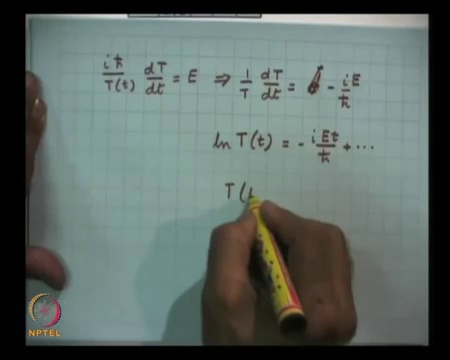 iħ/T(t) dT/dt = E ⇒ 1/T dT/dt = - iE/ħ
ln T(t) = - iEt/ħ + ...
T(
NPTEL